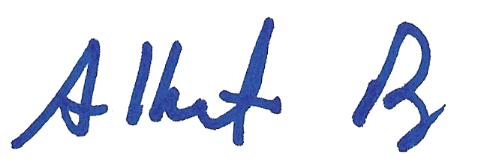 Albert B